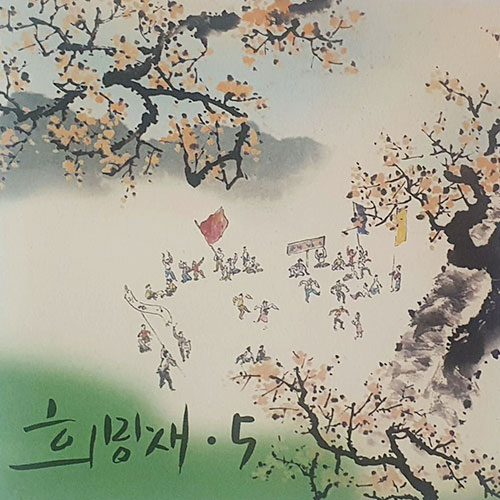 희망새 · 5